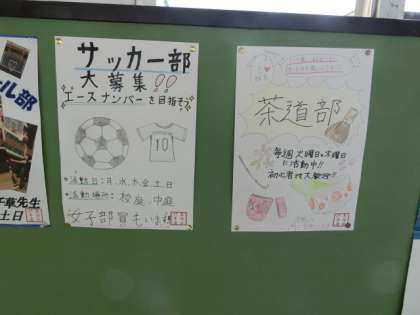 ル部
華先生
土日
サッカー部
大募集!!
エースナンバーを目指そう
10
・活動日：月、水、木、金、土、日
・活動場所：校庭、中庭
女子部員もいます
茶道部
毎週 火曜日・木曜日
に活動中!!
初心者も大歓迎!!